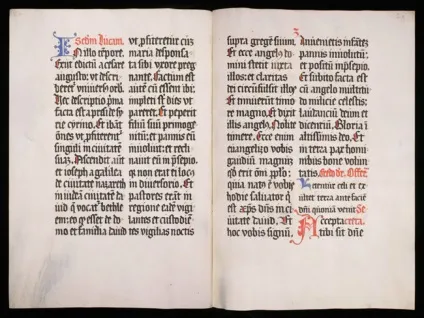 Sedm Lucam.
In illo tempore.
Exiit edictū a cesare
augusto: ut descri
beret' uniuers' orb.
Hec descriptio p̄ma
facta est a p̄side sy
rie cyrino. Et ibāt
ōnes ut p̄fiterent'
singuli in ciuitatē
suaʒ. Ascendit aūt
et ioseph a galilea
de ciuitate nazareth
in iudeā ciuitatē da
uid q̄ uocat' bethle
em: eo q esset de do
mo et familia dauid
ut p̄fiteretur cuʒ
maria desponsa
ta sibi uxore preg
nante. Factum est
aūt cū essent ibi:
impleti sūt dies ut
pareret. Et peperit
filiū suū primoge
nitū: et pannis eū
inuoluit: et recli
nauit eū in p̄sepio.
qi non erat ei loc'
in diuersorio. Et
pastores erāt in
regione eadē uigi
lantes et custodiē
tes uigilias noctis
supra gregē suum.
Et ecce angelus do
mini stetit iuxta
illos: et claritas
dei circūfulsit illos
Et timuerūt timo
re magno. Et dixit
illis angelus. Nolite
timere. Ecce enim
euangelizo uobis
gaudiū magnū
qd erit om̄i p̄plo:
quia nat' ē uobis
hodie saluator q̄
est xp̄s dn̄s in ci
uitate dauid. Et
hoc uobis signū.
Inuenietis infātē
pannis inuolutū:
et positū in p̄sepio.
Et subito facta est
cū angelo multitu
do milicie celestis:
laudanciū deum et
dicentiū. Gloria ī
altissimis deo. Et
in terra pax homī
nibus bone uolun
tatis.
Letentur celi et ex
ultet terra ante faciē
dn̄i quoniā uenit.
Accepta
tibi sit dn̄e